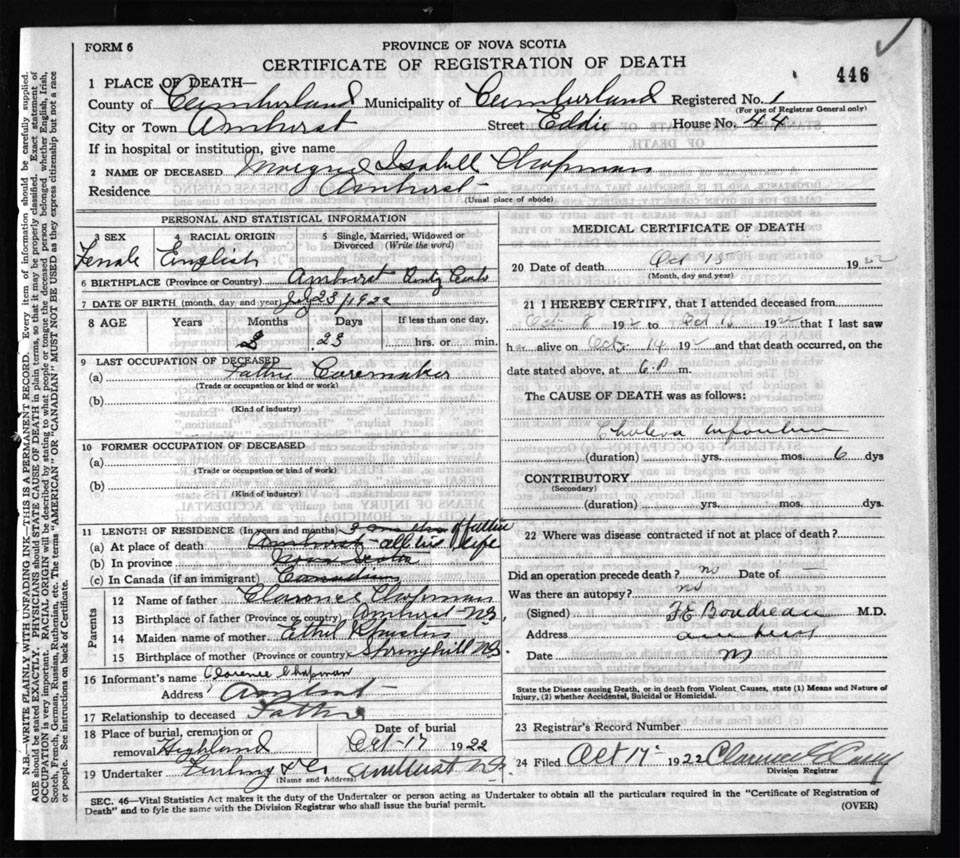 FORM 6
PROVINCE OF NOVA SCOTIA
CERTIFICATE OF REGISTRATION OF DEATH
446
1 PLACE OF DEATH—
County of Cumberland Municipality of Cumberland Registered No. 1
(For use of Registrar General only)
City or Town Amherst Street Eddie House No. 44
If in hospital or institution, give name
2 NAME OF DECEASED Isabell Chapman
Residence Amherst
(Usual place of abode)
PERSONAL AND STATISTICAL INFORMATION
3 SEX 4 RACIAL ORIGIN 5 Single, Married, Widowed or Divorced (Write the word)
Female English
6 BIRTHPLACE (Province or Country) Amherst
7 DATE OF BIRTH (month, day and year) July 23/1922
8 AGE Years Months Days If less than one day,
23 hrs. or min.
9 LAST OCCUPATION OF DECEASED
(a) Father
(Trade or occupation or kind or work)
(b)
(Kind of industry)
10 FORMER OCCUPATION OF DECEASED
(a)
(Trade or occupation or kind or work)
(b)
(Kind of industry)
11 LENGTH OF RESIDENCE (In years and months) of father
(a) At place of death Amherst all his life
(b) In province Nova Scotia
(c) In Canada (if an immigrant) Canadian
Parents
12 Name of father Clarence Chapman
13 Birthplace of father (Province or country) Amherst NS.
14 Maiden name of mother Ethel
15 Birthplace of mother (Province or country) Springhill NS.
16 Informant's name Clarence Chapman
Address Amherst
17 Relationship to deceased Father
18 Place of burial, cremation or removal Highland Date of burial Oct 17 1922
19 Undertaker Furling & Co Amherst NS
(Name and Address)
MEDICAL CERTIFICATE OF DEATH
20 Date of death Oct 15 1922
(Month, day and year)
21 I HEREBY CERTIFY, that I attended deceased from
Oct 8 192 to Oct 192 that I last saw
h alive on Oct 14 192 and that death occurred, on the
date stated above, at 6 P m.
The CAUSE OF DEATH was as follows:
Cholera infantum
(duration) yrs. mos. 6 dys
CONTRIBUTORY
(Secondary)
(duration) yrs. mos. dys
22 Where was disease contracted if not at place of death?
Did an operation precede death? no Date of
Was there an autopsy? no
(Signed) F E Boudreau M.D.
Address Amherst
Date
State the Disease causing Death, or in death from Violent Causes, state (1) Means and Nature of Injury, (2) whether Accidental, Suicidal or Homicidal.
23 Registrar's Record Number
24 Filed Oct 17 1922 Clarence
Division Registrar
SEC. 46—Vital Statistics Act makes it the duty of the Undertaker or person acting as Undertaker to obtain all the particulars required in the "Certificate of Registration of
Death" and to fyle the same with the Division Registrar who shall issue the burial permit.
(OVER)
N.B.—WRITE PLAINLY WITH UNFADING INK—THIS IS A PERMANENT RECORD. Every item of information should be carefully supplied.
AGE should be stated EXACTLY. PHYSICIANS should STATE CAUSE OF DEATH in plain terms, so that it may be properly classified. Exact statement of
OCCUPATION is very important. RACIAL ORIGIN will be described by stating to what people or tongue the deceased person belonged whether English, Irish,
Scotch, French, German, Russian, Ruthenian, etc. The terms "AMERICAN" OR "CANADIAN" MUST NOT BE USED as they express citizenship but not a race
or people. See instructions on back of Certificate.